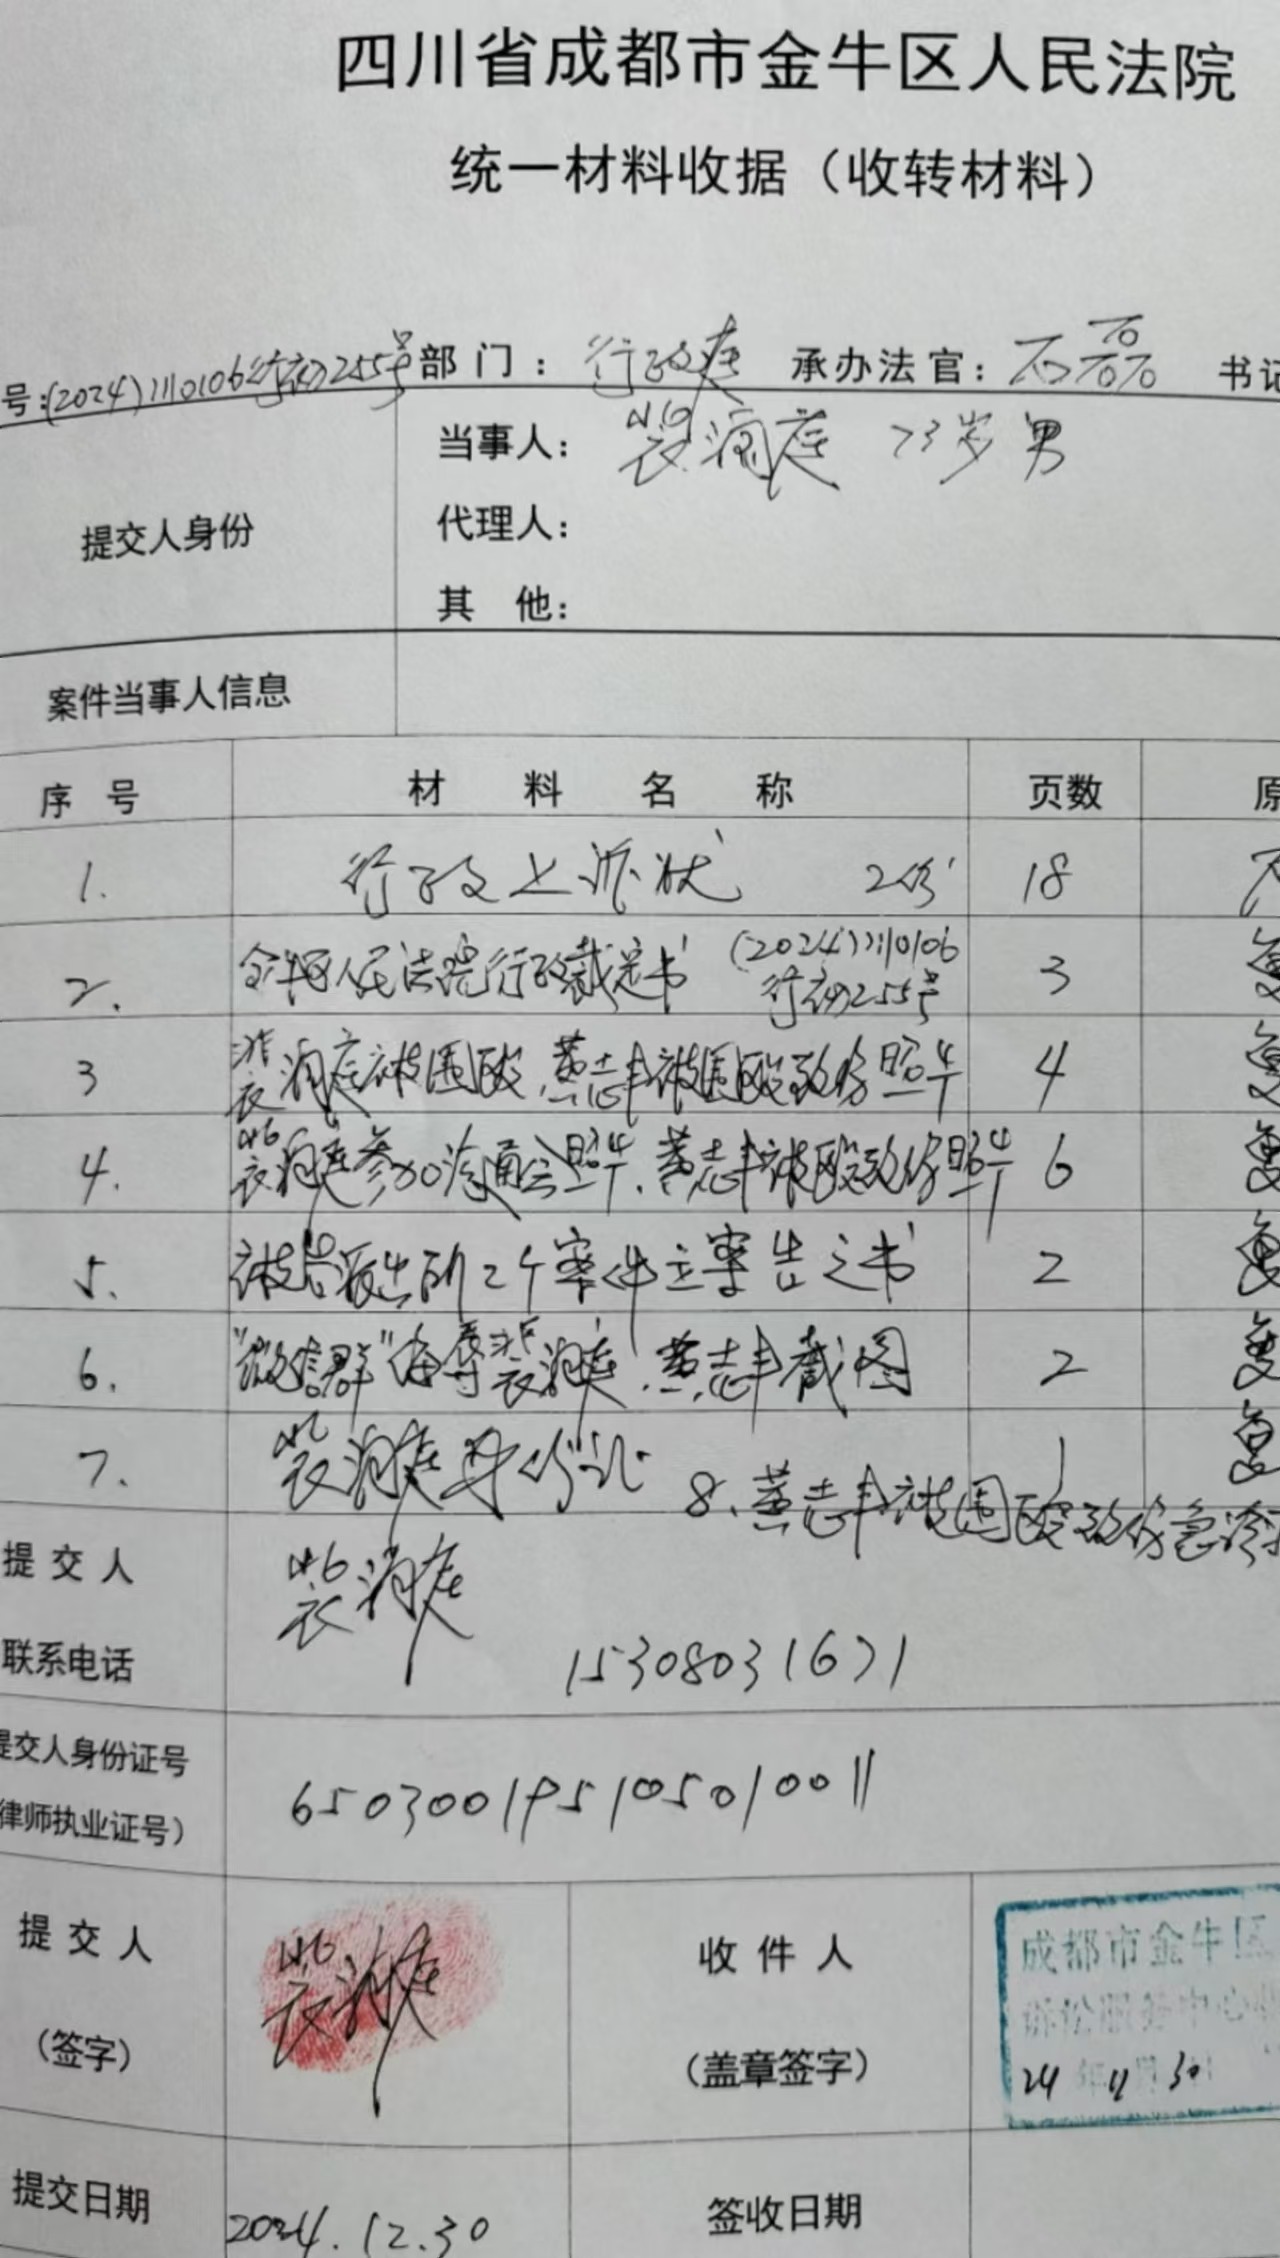 四川省成都市金牛区人民法院
统一材料收据（收转材料）
号:(2024)川0106行初255号 部门： 行政庭 承办法官：石磊 书记
提交人身份
当事人： 裴润庭 73岁 男
代理人：
其 他：
案件当事人信息
序 号 材 料 名 称 页数 原
1. 行政上诉状 2份 18
2. 金牛区人民法院行政裁定书 (2024)川0106行初255号 3 复
3 裴润庭被围殴、黄志丰被围殴致伤照片 4 复
4. 裴润庭参加沟通会照片、黄志丰被殴致伤照片 6 复
5. 被告派出所2个案件立案告之书 2 复
6. “微信群”侮辱裴润庭、黄志丰截图 2 复
7. 裴润庭身份证 1 复
8、黄志丰被围殴致伤急诊
提 交 人 裴润庭
联系电话 15308031671
提交人身份证号
律师执业证号） 650300195105010011
提 交 人
（签字） 裴润庭
收 件 人
（盖章签字）
成都市金牛区
诉讼服务中心
24年 月30
提交日期 2024.12.30 签收日期